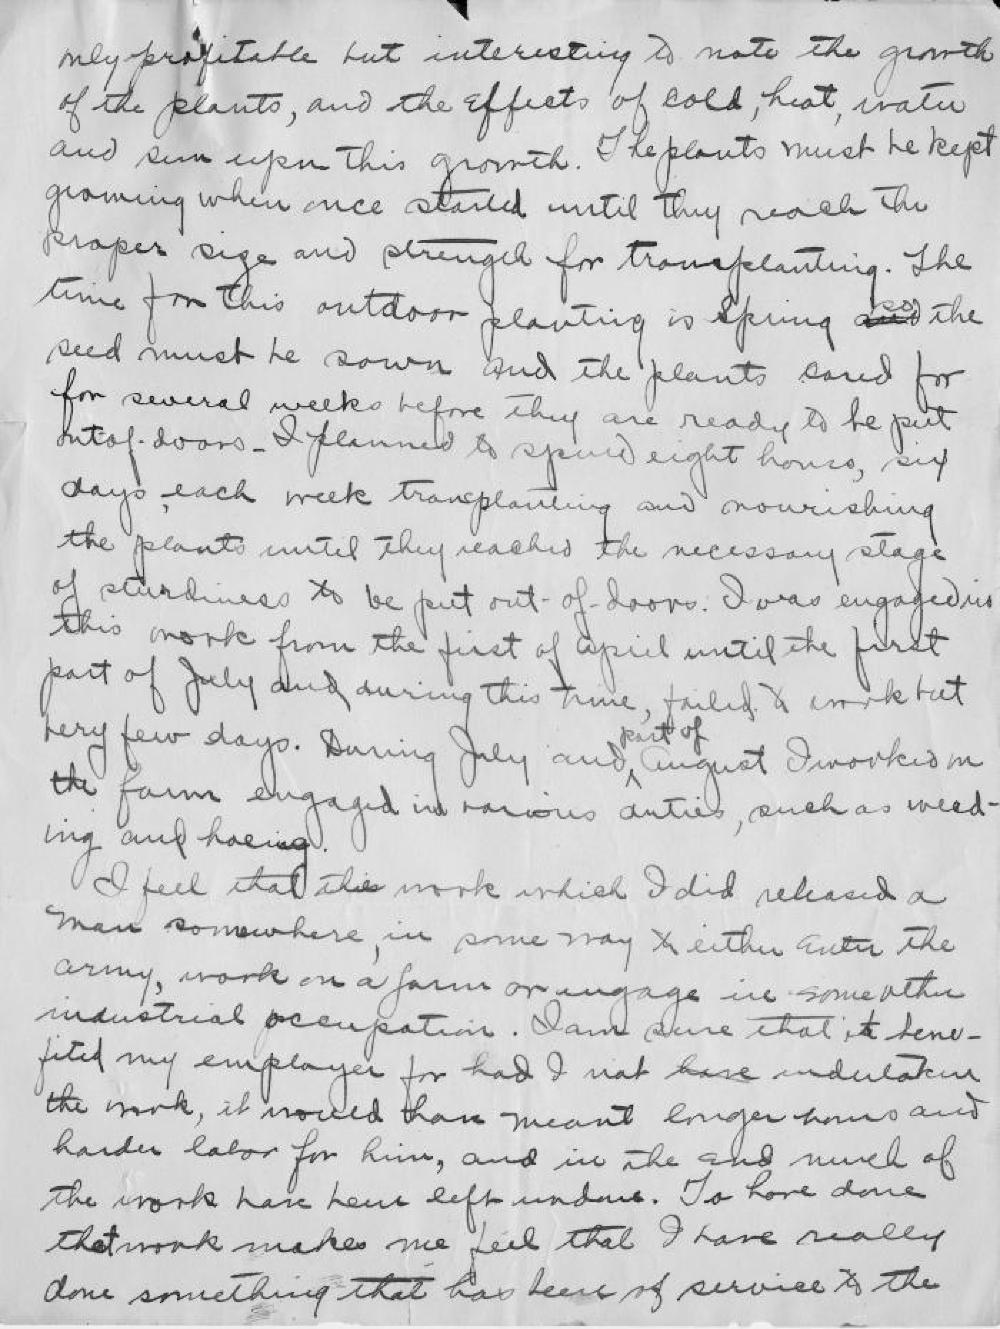 only profitable but interesting to note the growth
of the plants, and the effects of cold, heat, water
and sun upon this growth. The plants must be kept
growing when once started until they reach the
proper size and strength for transplanting. The
time for this outdoor planting is Spring and so the
seed must be sown and the plants cared for
for several weeks before they are ready to be put
out of-doors - I planned to spend eight hours, six
days, each week transplanting and nourishing
the plants until they reached the necessary stage
of sturdiness to be put out-of-doors. I was engaged in
this work from the first of April until the first
part of July and during this time, failed to work but
very few days. During July and part of August I worked on
the farm engaged in various duties, such as weed-
ing and hoeing.
I feel that this work which I did released a
man somewhere, in some way to either enter the
army, work on a farm or engage in some other
industrial occupation. I am sure that it bene-
fited my employer for had I not have undertaken
the work, it would than meant longer hours and
harder labor for him, and in the end much of
the work have been left undone. To have done
that work makes me feel that I have really
done something that has been of service to the